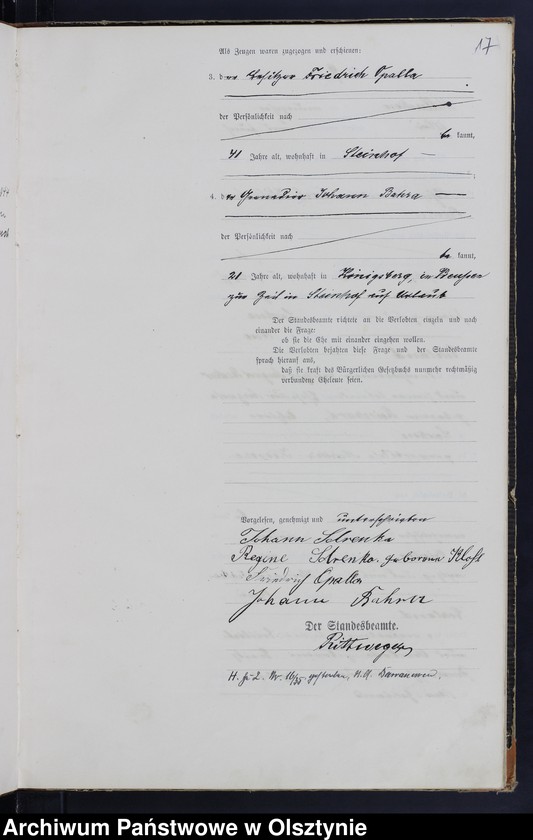 17
Als Zeugen waren zugezogen und erschienen:
3. der Besitzer Friedrich Opalla
der Persönlichkeit nach
be kannt,
41 Jahre alt, wohnhaft in Steinhof
4. der Grenadier Johann Bahra
der Persönlichkeit nach
be kannt,
21 Jahre alt, wohnhaft in Königsberg, in Preußen
zur Zeit in Steinhof auf Urlaub
Der Standesbeamte richtete an die Verlobten einzeln und nach
einander die Frage:
ob sie die Ehe mit einander eingehen wollen.
Die Verlobten bejahten diese Frage und der Standesbeamte
sprach hierauf aus,
daß sie kraft des Bürgerlichen Gesetzbuchs nunmehr rechtmäßig
verbundene Eheleute seien.
Vorgelesen, genehmigt und unterschrieben
Johann
Regine geborene
Friedrich Opalla
Johann Bahra
Der Standesbeamte.
Rittweger
gestorben,
Archiwum Państwowe w Olsztynie